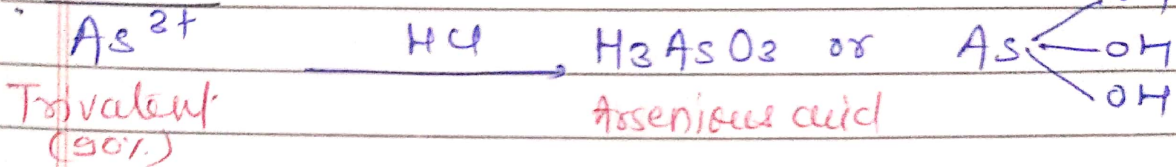 As 3+ HCl H3AsO3 or As OH
Trivalent Arsenious acid OH
(90%)